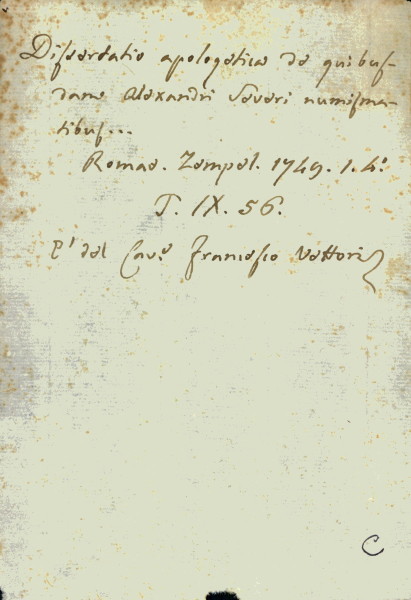 Dissertatio apologetica de quibus-
dam Alexandri Severi numisma-
tibus...
Romae. Zempel. 1749. 1. 4.º
T. IX. 56.
E' del Cav.e Francesco Vettori
C